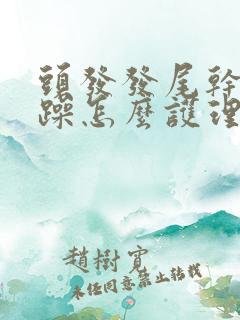 頭發發尾幹
躁怎麼護理
趙樹實
未经同意禁止转载